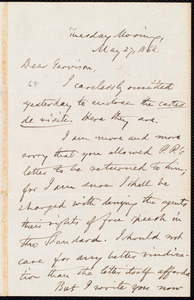 Tuesday Morning,
May 27, 1862.
Dear Garrison,
I carelessly omitted
yesterday to enclose the cartes
de visite. Here they are.
I am more and more
sorry that you allowed P.P.'s
letter to be returned to him;
for I am sure I shall be
charged with denying the agents
their rights of free speech in
the Standard. I should not
care for any better vindica-
tion than the letter itself affords.
But I write you now